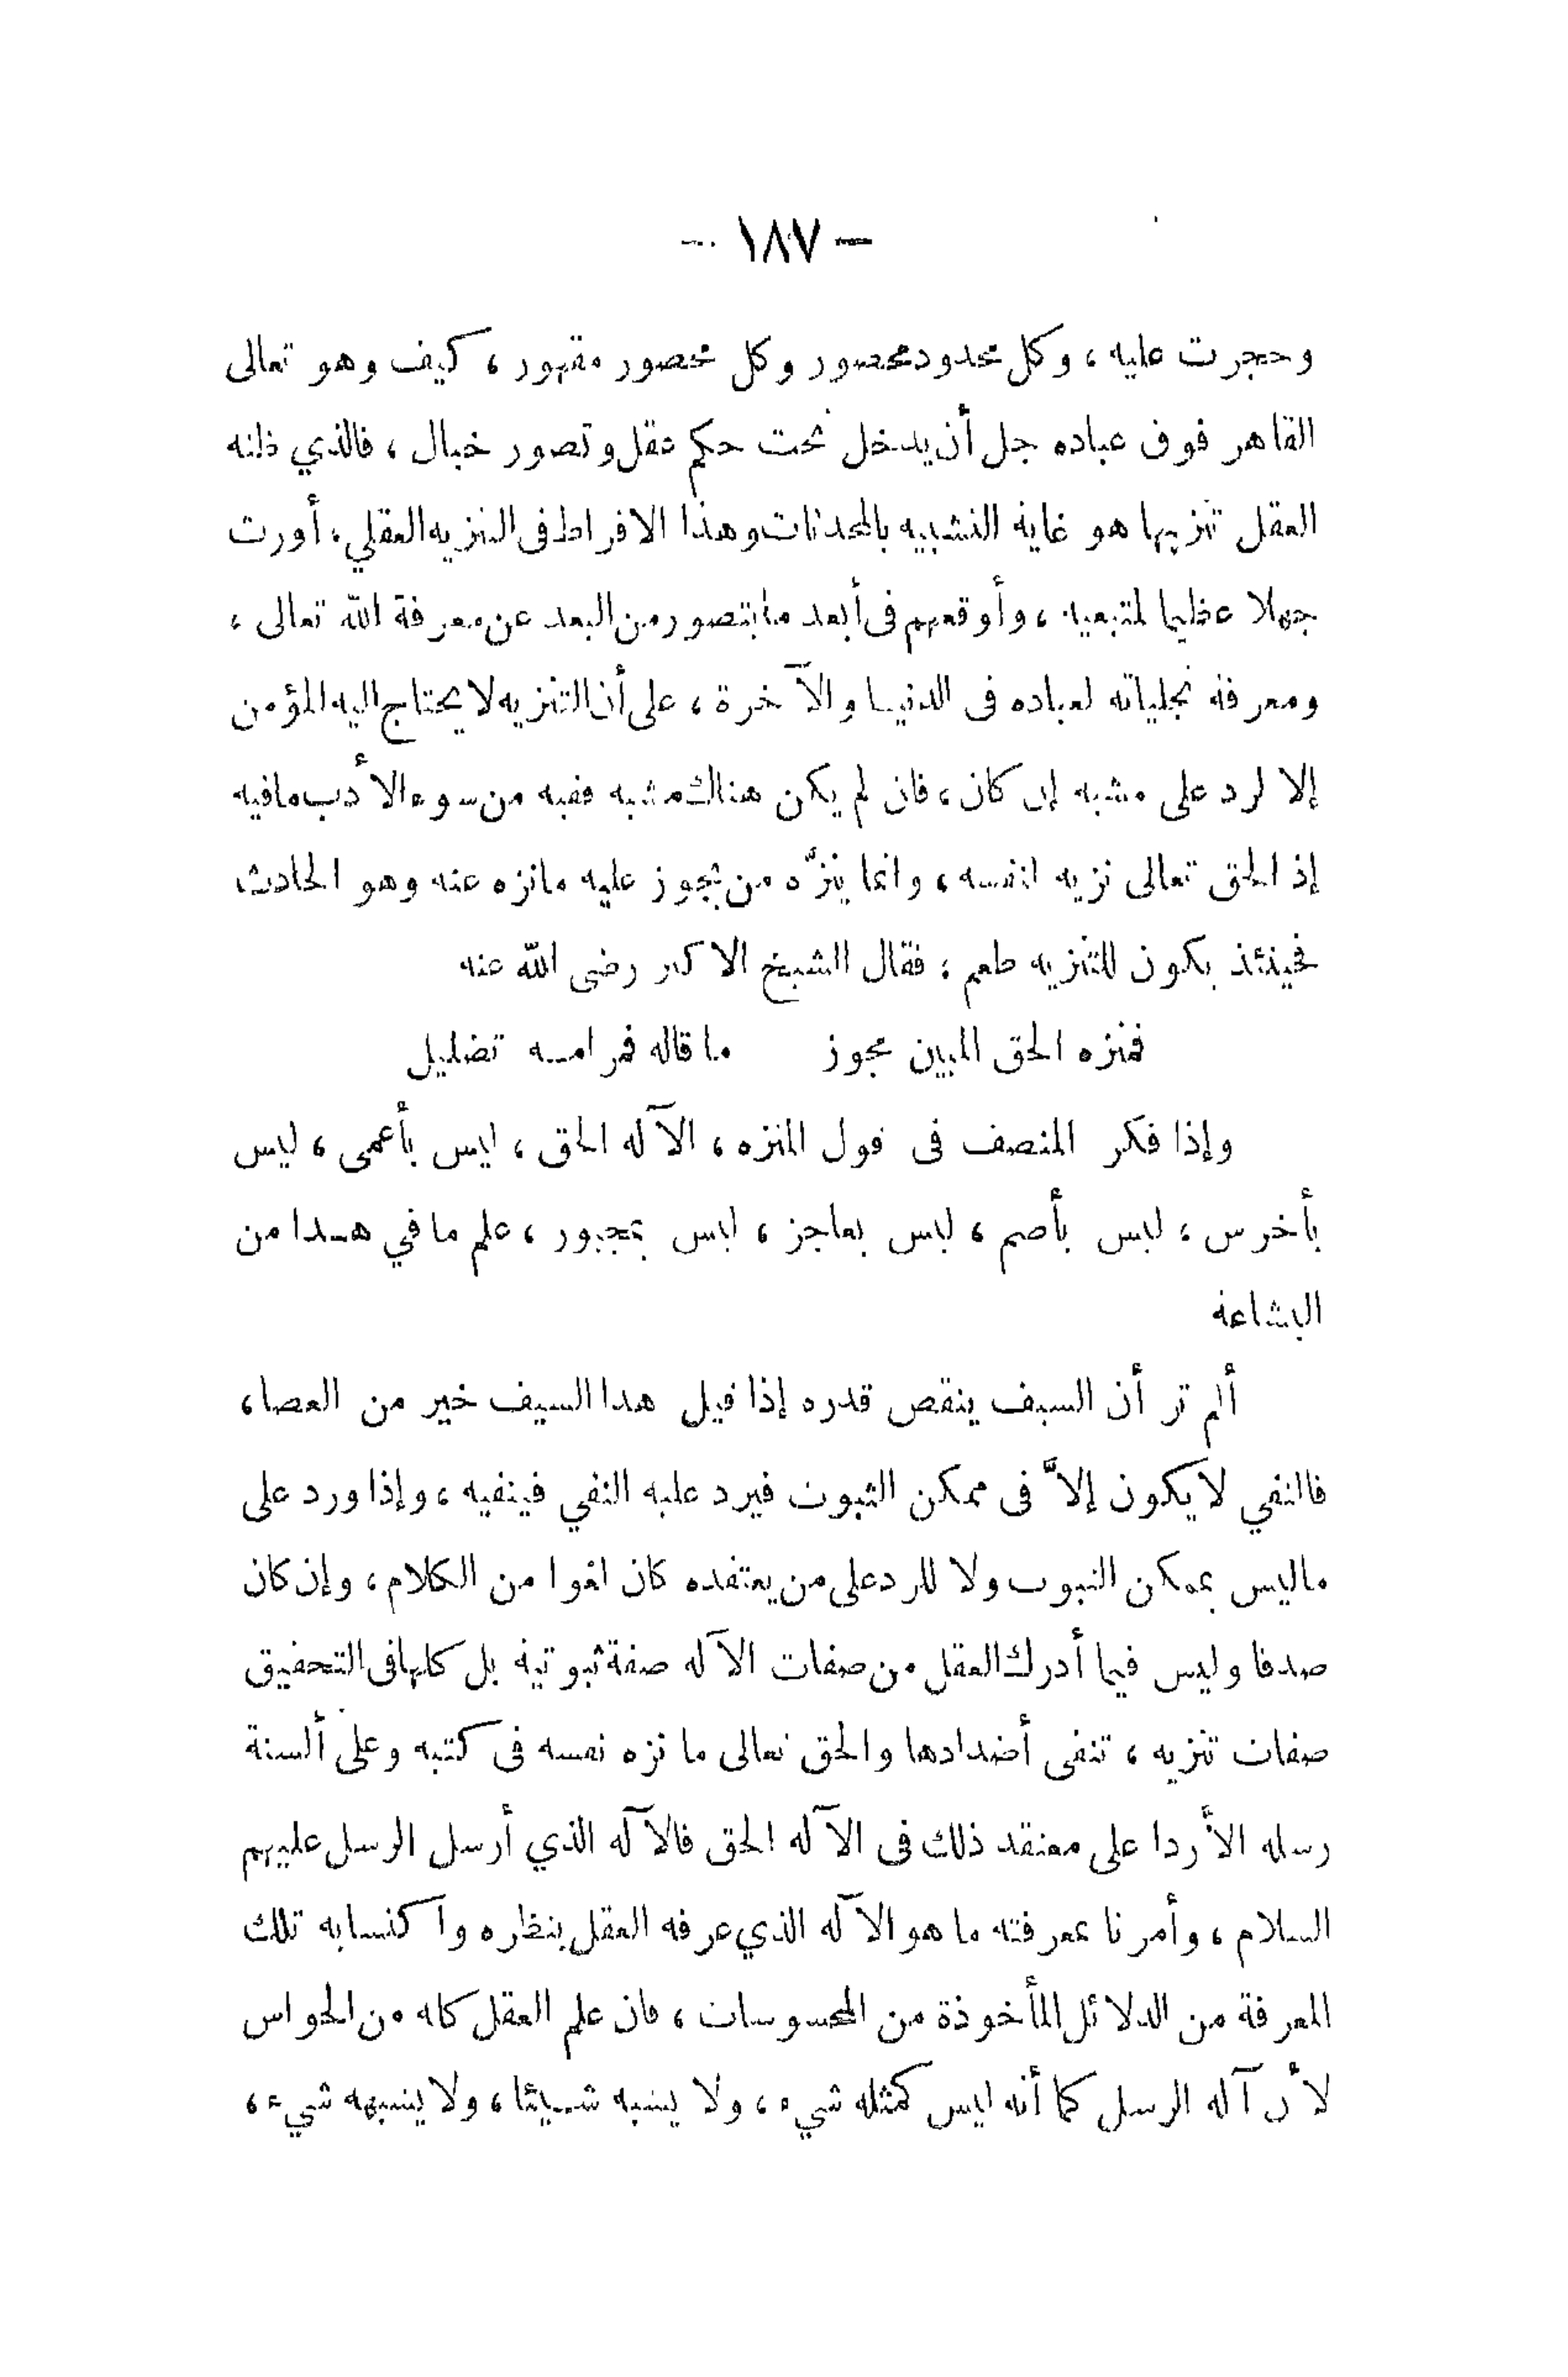 – ١٨٧ –
وحجرت عليه ، وكل محدود محصور وكل محصور مقهور ، كيف وهو تعالى
القاهر فوق عباده جل أن يدخل تحت حكم عقل وتصور خيال ، فالذي ظنه
العقل تنزيها هو غاية التشبيه بالمحدثات وهذا الافراط فى التنزيه العقلي ، أورث
جهلا عظيما لمتبعيه ، وأوقعهم فى أبعد ما يتصور من البعد عن معرفة الله تعالى ،
ومعرفة تجلياته لعباده فى الدنيا والآخرة ، على أن التنزيه لا يحتاج اليه المؤمن
إلا لرد على مشبه إن كان ، فان لم يكن هناك مشبه ففيه من سوء الأدب مافيه
إذ الحق تعالى نزيه لنفسه ، وانما ينزّه من يجوز عليه مانزه عنه وهو الحادث
فحينئذ يكون للتنزيه طعم ، فقال الشيخ الاكبر رضى الله عنه
فمنزه الحق المبين مجوز ما قاله فمرامه تضليل
وإذا فكر المنصف فى قول المنزه ، الآله الحق ، ليس بأعمى ، ليس
بأخرس ، ليس بأصم ، ليس بعاجز ، ليس بمجبور ، علم ما في هذا من
البشاعة
ألم تر أن السيف ينقص قدره إذا قيل هذا السيف خير من العصا ،
فالنفي لا يكون إلاّ فى ممكن الثبوت فيرد عليه النفي فينفيه ، وإذا ورد على
ماليس بممكن الثبوت ولا للرد على من يعتقده كان لغوا من الكلام ، وإن كان
صدقا وليس فيما أدرك العقل من صفات الآله صفة ثبوتية بل كلها فى التحقيق
صفات تنزيه ، تنفى أضدادها والحق تعالى ما نزه نفسه فى كتبه وعلى ألسنة
رسله الأردا على معتقد ذلك فى الآله الحق فالآله الذي أرسل الرسل عليهم
السلام ، وأمرنا بمعرفته ما هو الآله الذي عرفه العقل بنظره وآكتسابه تلك
المعرفة من الدلائل المأخوذة من المحسوسات ، فان علم العقل كله من الحواس
لأن آله الرسل كما أنه ليس كمثله شيء ، ولا يشبه شيئا ، ولا يشبهه شيء ،